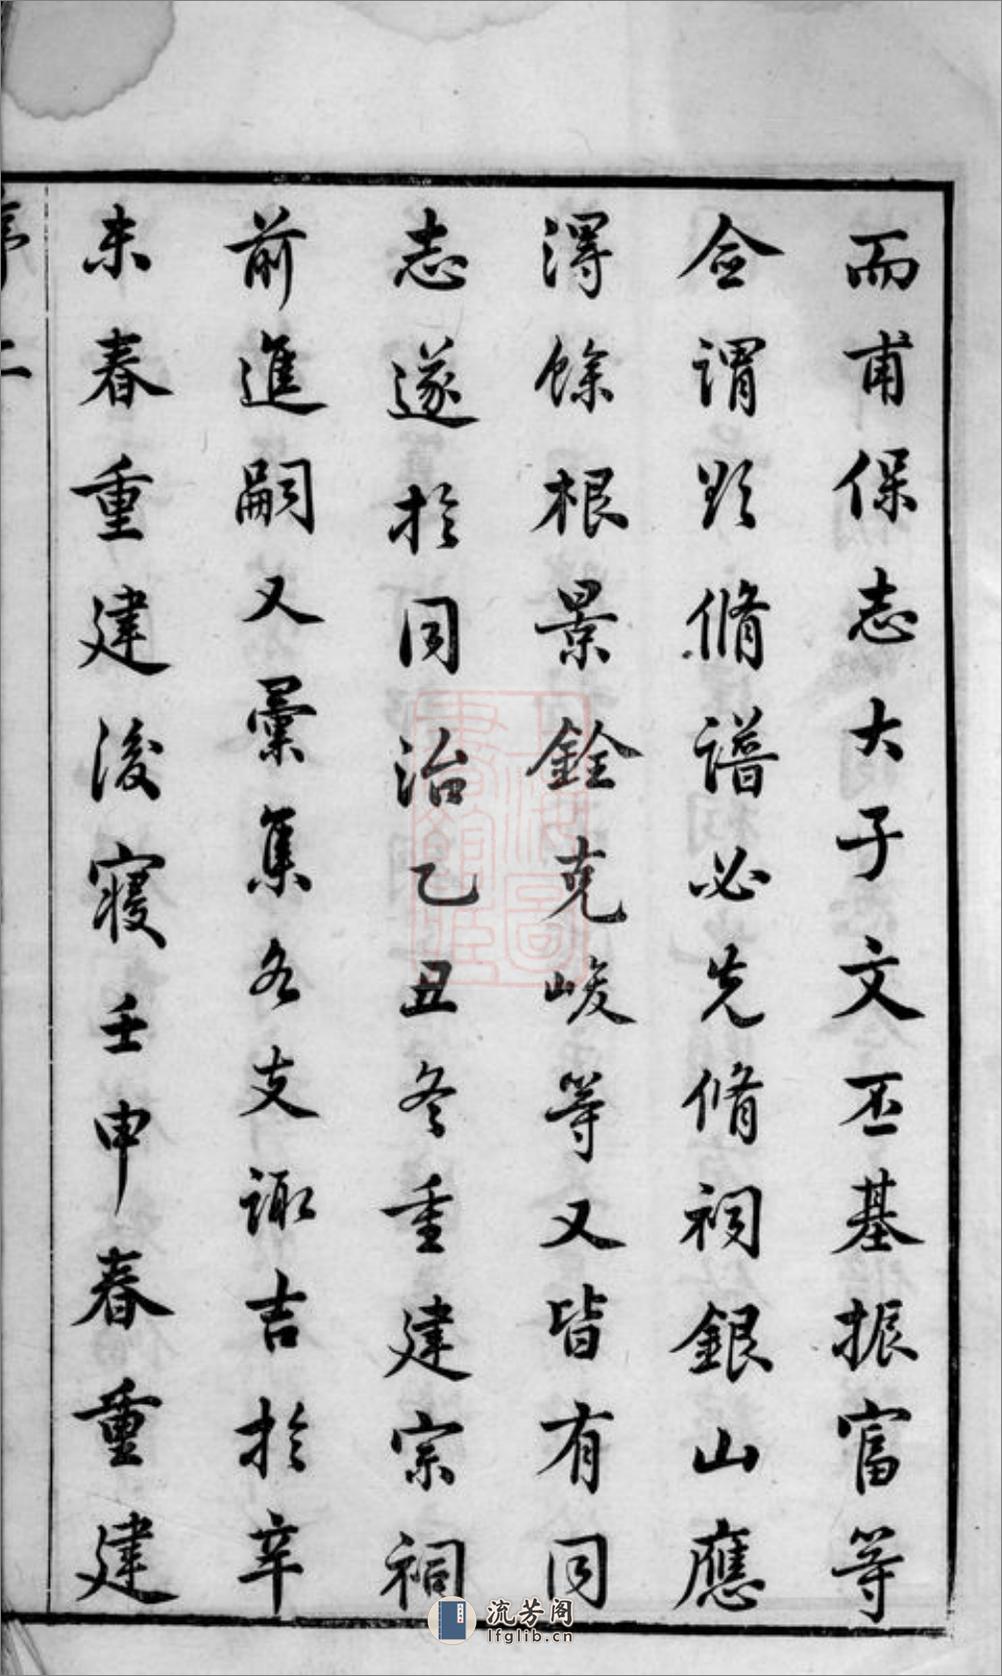 而甫保志大子文丕基振富等
僉謂欲脩譜必先脩祠銀山應
淂餘根景銓克峻等又皆有同
志遂於同治乙丑冬重建宗祠
前進嗣又彙集各支諏吉於辛
未春重建後寢壬申春重建
序 二
上海圖書館藏
流芳阁
lfglib.cn